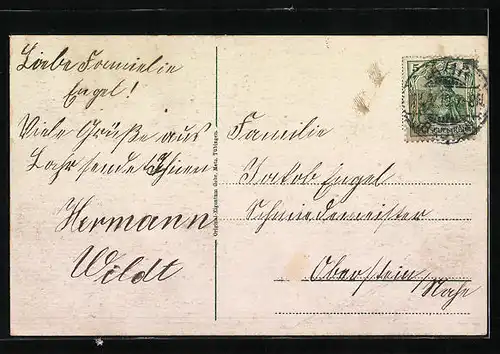 Liebe Familie
Engel!
Viele Grüße aus
Lahr sendet Ihnen
Hermann
Wildt
Original-Eigentum Gebr. Metz, Tübingen.
Familie
Jakob Engel
Schmiedemeister
Oberstein/Nahe
5